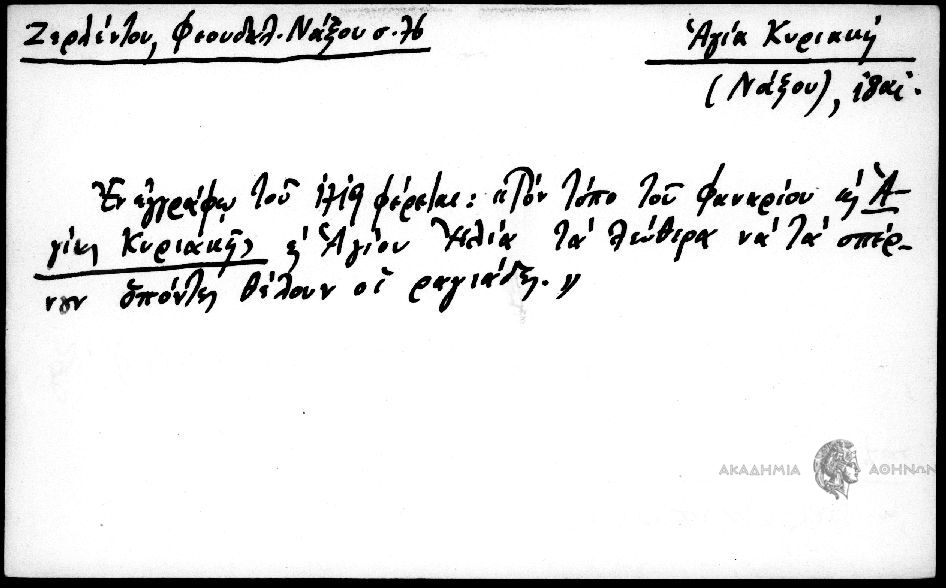 Ζερλέντου, Φεουδαλ. Νάξου σ. 76
Ἁγία Κυριακή
(Νάξου),
Ἐν ἐγγράφῳ τοῦ 1719 φέρεται: «Τὸν τόπο τοῦ Φαναρίου κ Ἁ-
γίας Κυριακῆς κ Ἁγίου Ἠλία τὰ λεύθερα νὰ τὰ σπέρ-
νουν ὅποντες θέλουν οἱ ραγιάδες.»
ΑΚΑΔΗΜΙΑ ΑΘΗΝΩΝ